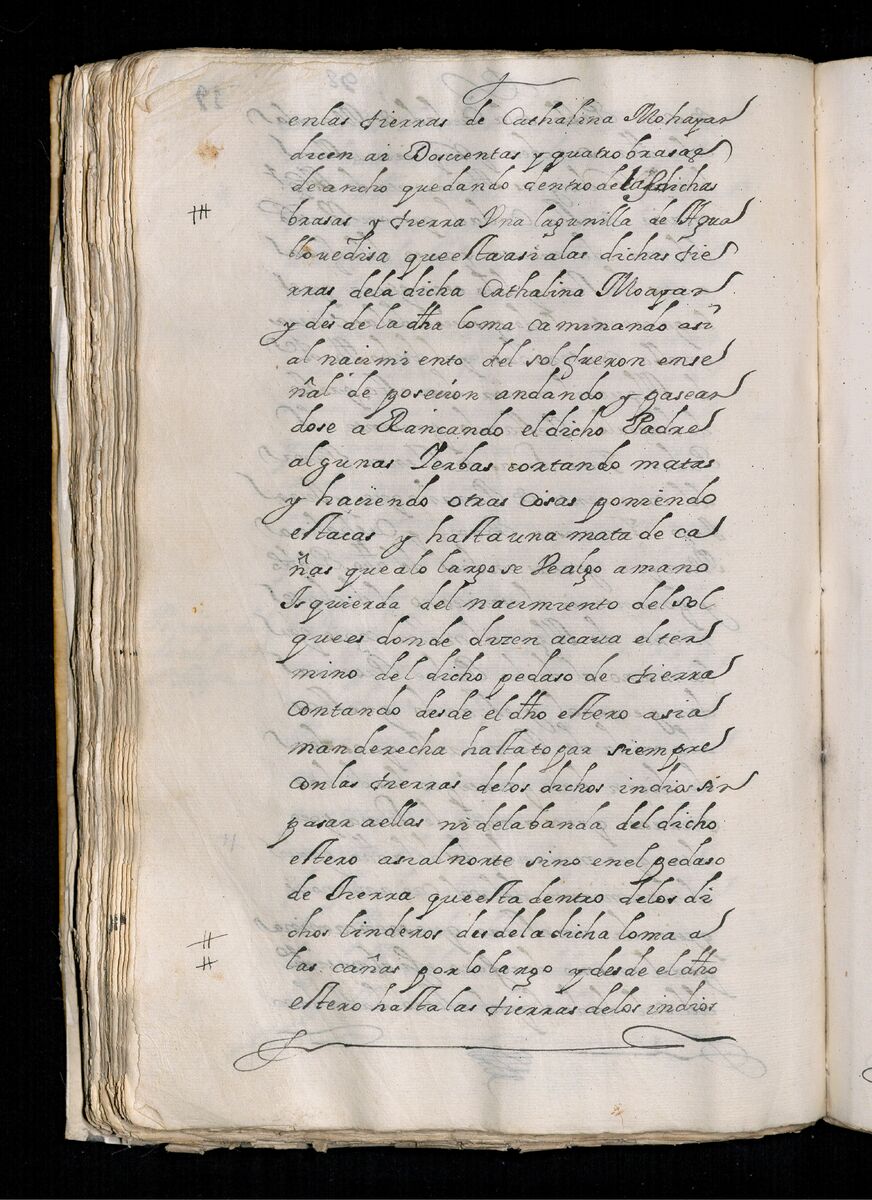 enlas tierras de Cathalina Mohayar
dicen ai Doscientas y quatro brasas
de ancho quedando dentro de las dichas
brasas y tierra Vna lagunilla de Agua
llouediça que esta asi alas dichas tie
rras dela dicha Cathalina Moayar
y desde la dha loma caminando asi
al nacimiento del sol fueron en se
ñal de posecion andando y pasean
dose aRancando el dicho Padre
algunas Yerbas cortando matas
y haçiendo otras Cosas poniendo
estacas y hasta una mata de ca
ñas que alo largo se Ve algo a mano
Isquierda del nacimiento del sol
que es donde dizen acaua el ter
mino del dicho pedaso de tierra
Contando desde el dho estero asia
manderecha hasta topar siempre
con las tierras delos dichos indios sin
pasar a ellas ni dela banda del dicho
estero asi al norte sino en el pedaso
de tierra que esta dentro delos di
chos linderos desde la dicha loma a
las cañas por lo largo y desde el dho
estero hasta las tierras delos indios